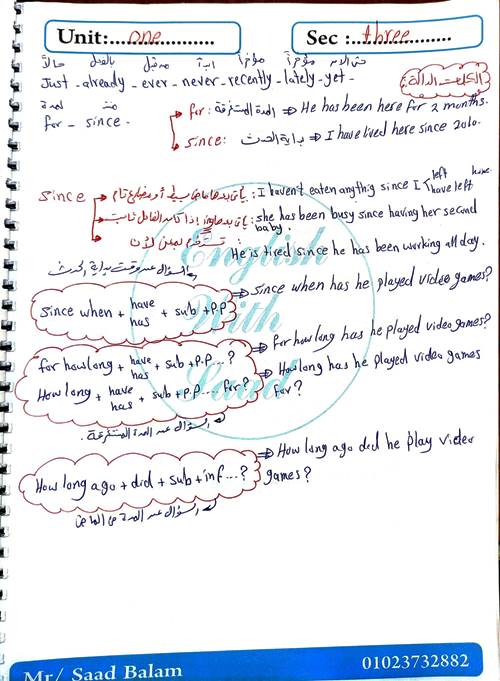 Unit:......one......
Sec :...three...
حتى الآن مؤخراً مؤخراً أبداً من قبل بالفعل حالاً
Just - already - ever - never - recently - lately - yet -
الكلمات الدالة:
منذ لمدة
for - since -
for: المدة المستغرقة ⇒ He has been here for 2 months.
since: بداية الحدث ⇒ I have lived here since 2010.
since
يأتي بعدها ماضي بسيط أو مضارع تام : I haven't eaten anythig since I left have left home
إذا كان الفاعل ثابت : she has been busy since having her second baby.
تستخدم بمعنى لأن
He is tired since he has been working all day.
السؤال عن وقت بداية الحدث
since when + have has + sub + p.p
⇒ since when has he played video games?
for how long + have has + sub + p.p....?
⇒ for how long has he played video games?
How long + have has + sub + p.p.... for?
⇒ How long has he played video games for?
السؤال عن المدة المستغرقة.
How long ago + did + sub + inf...?
⇒ How long ago did he play video games?
السؤال عن المدة من الماضى
English With Saad
Mr/ Saad Balam
01023732882